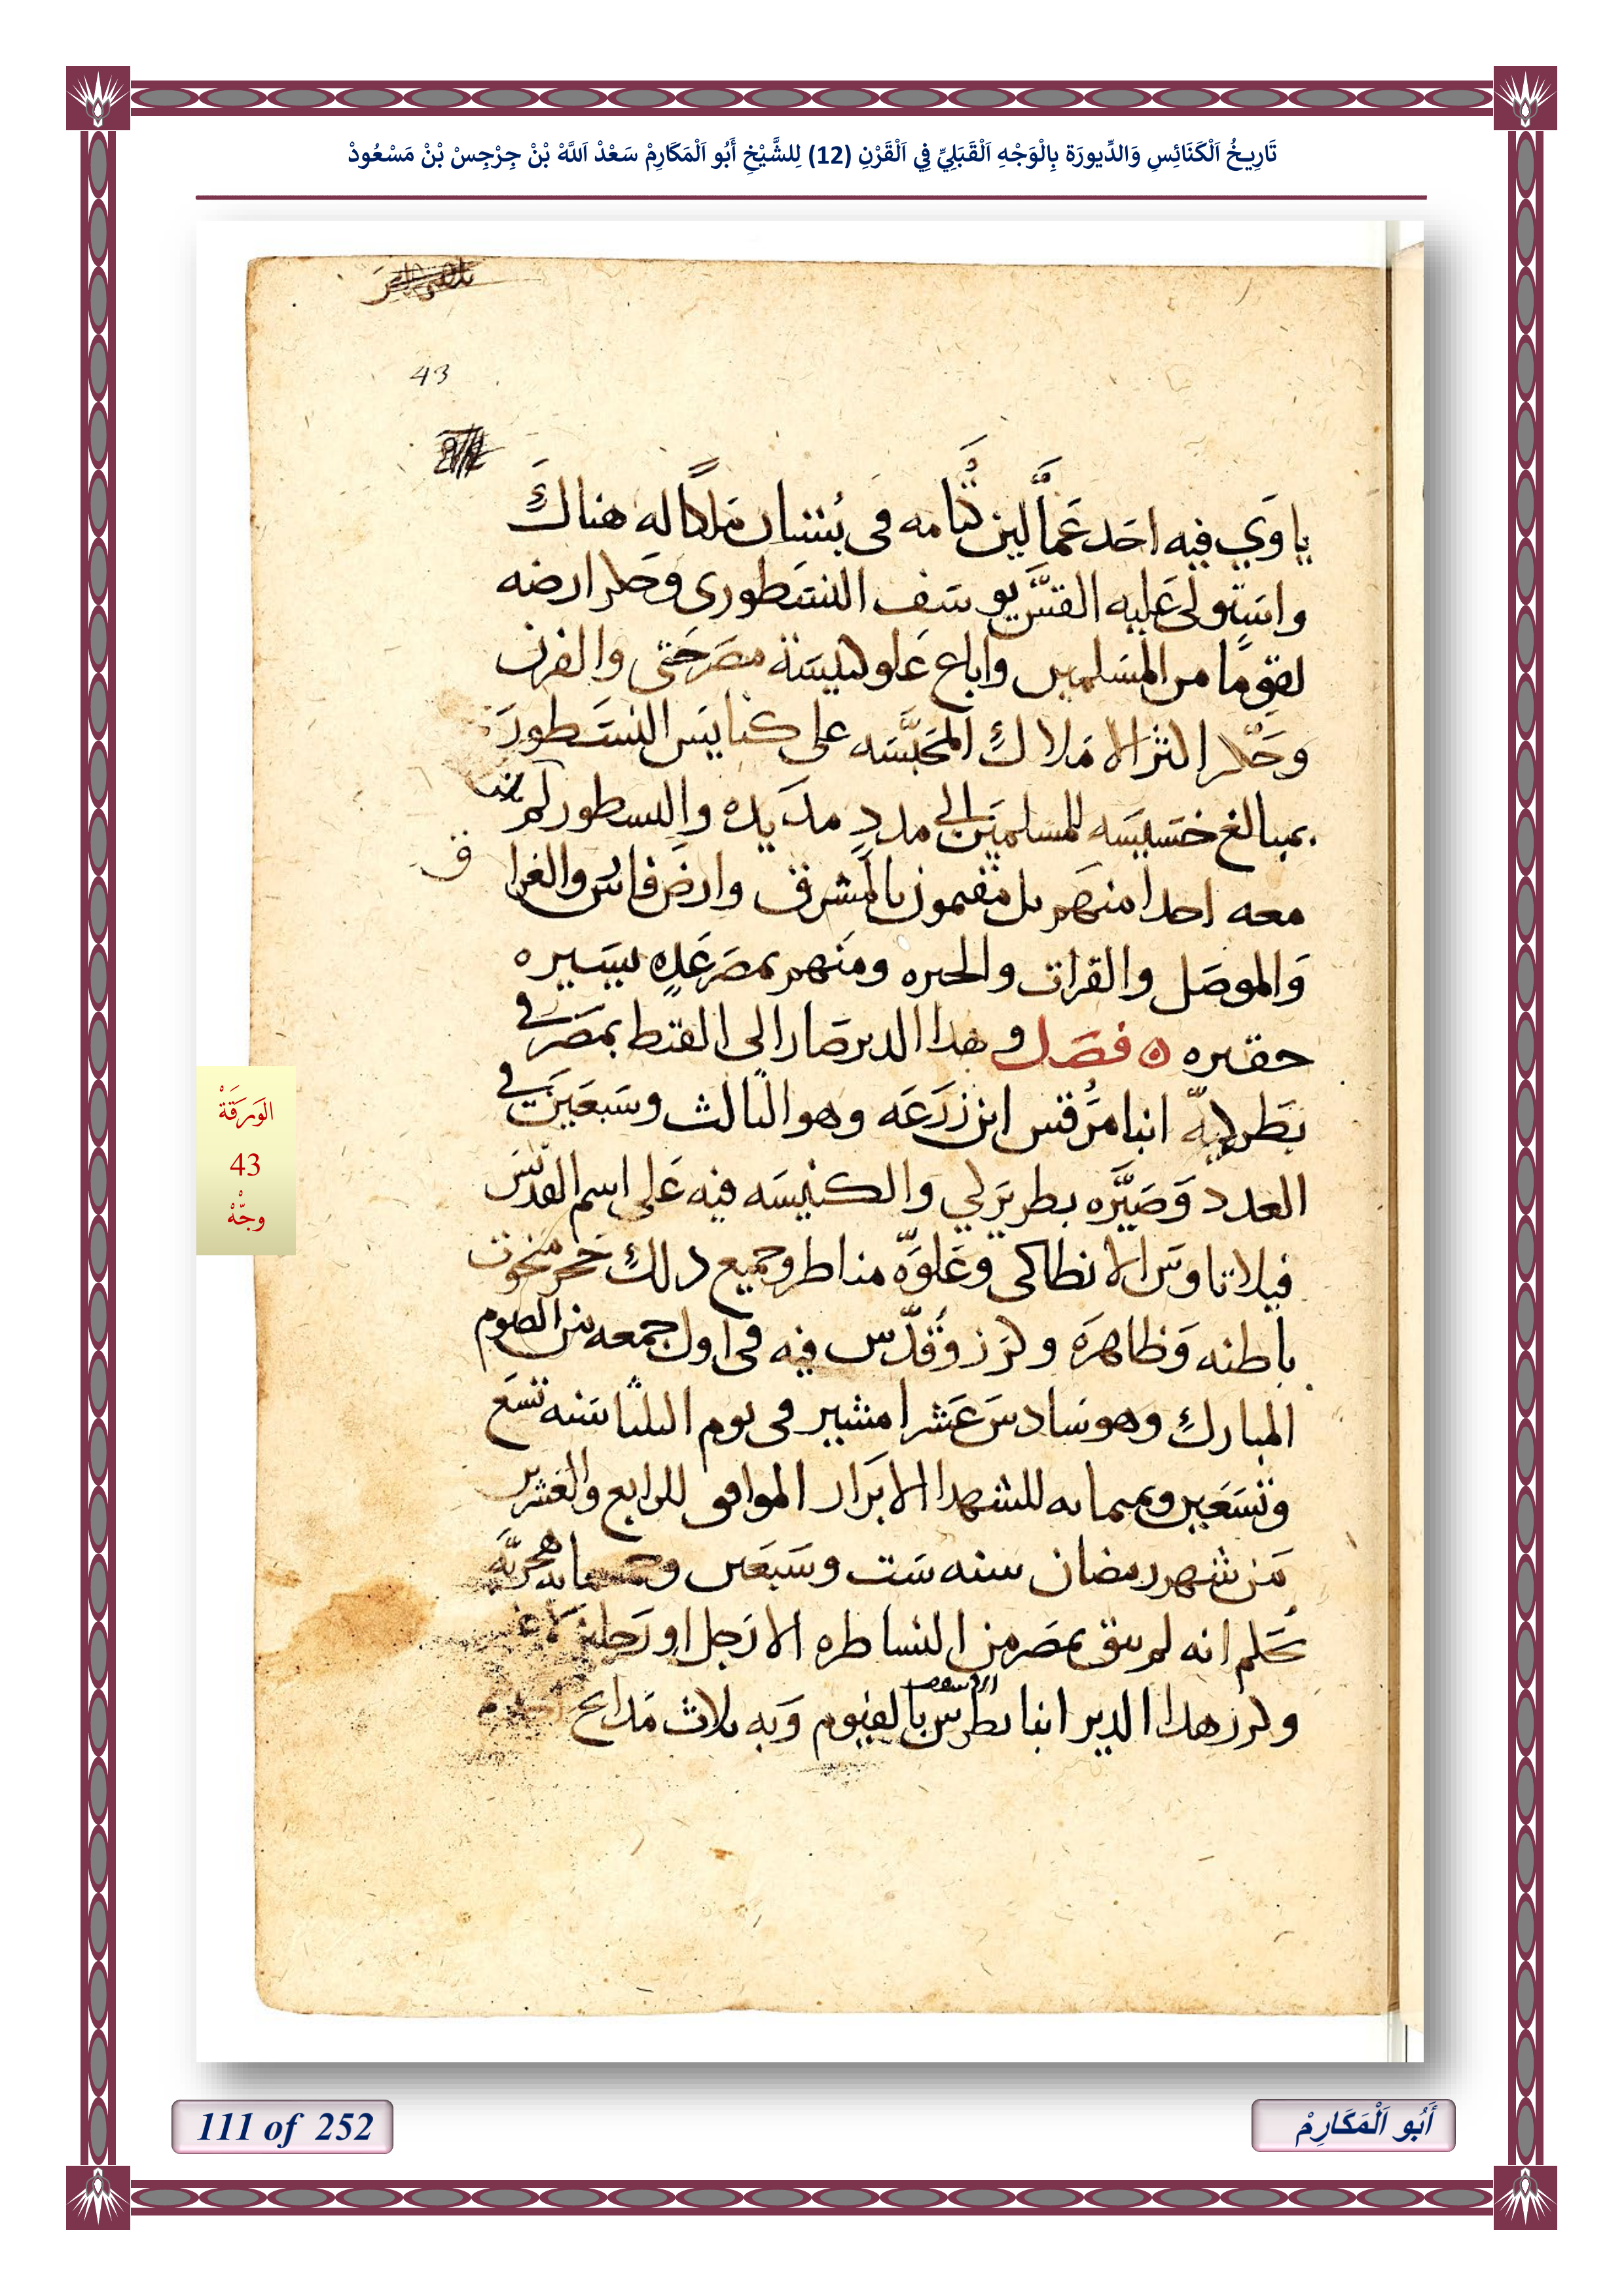 تَارِيخُ اَلْكَنَائِسِ وَالدِّيورَة بِالْوَجْهِ اَلْقَبَلِيِّ فِي اَلْقَرْنِ (12) لِلشَّيْخِ أَبُو اَلْمَكَارِمْ سَعْدْ اَللَّهْ بْنْ جِرْجِسْ بْنْ مَسْعُودْ
43
ياوي فيه احد عمالين كتامه في بستان ملكا له هناك
واستولى عليه القس يوسف النسطورى وحكر ارضه
لقوما من المسلمين واباع علو كنيسة مصر حتى والفرن
وحكر اكثر الاملاك المحبسه على كنايس النسطور
بمبالغ خسيسه للمسلمين الى مدد مديده والنسطور لم
معه احدا منهم بل مقيمون بالمشرق وارض فارس والعرا
ق
والموصل والفرات والحيره ومنهم بمصر عده يسيره
حقيره ه فصل وهدا الدير صار الى القبط بمصر في
بطركية انبا مرقس ابن زرعه وهو الثالث وسبعين في
العدد وصيره بطريركي والكنيسه فيه على اسم القديس
فيلاتاوس الانطاكى وعلوه مناظر وجميع دلك حجر منحوت
باطنه وظاهره وكرز وقدس فيه في اول جمعه من الصوم
المبارك وهو سادس عشر امشير في يوم الثلثا سنه تسع
وتسعين وثمانمايه للشهدا الابرار الموافق للرابع والعشرين
من شهر رمضان سنه ست وسبعين وخمسمايه هجريه
انه لم يبق بمصر من النساطره الا رجل او رجلين
الاسقف
وكرز هدا الدير انبا بطرس بالفيوم وبه ثلاث مدابح
الوَرَقَةْ
43
وجّهْ
111 of 252
أَبُو اَلْمَكَارِمْ